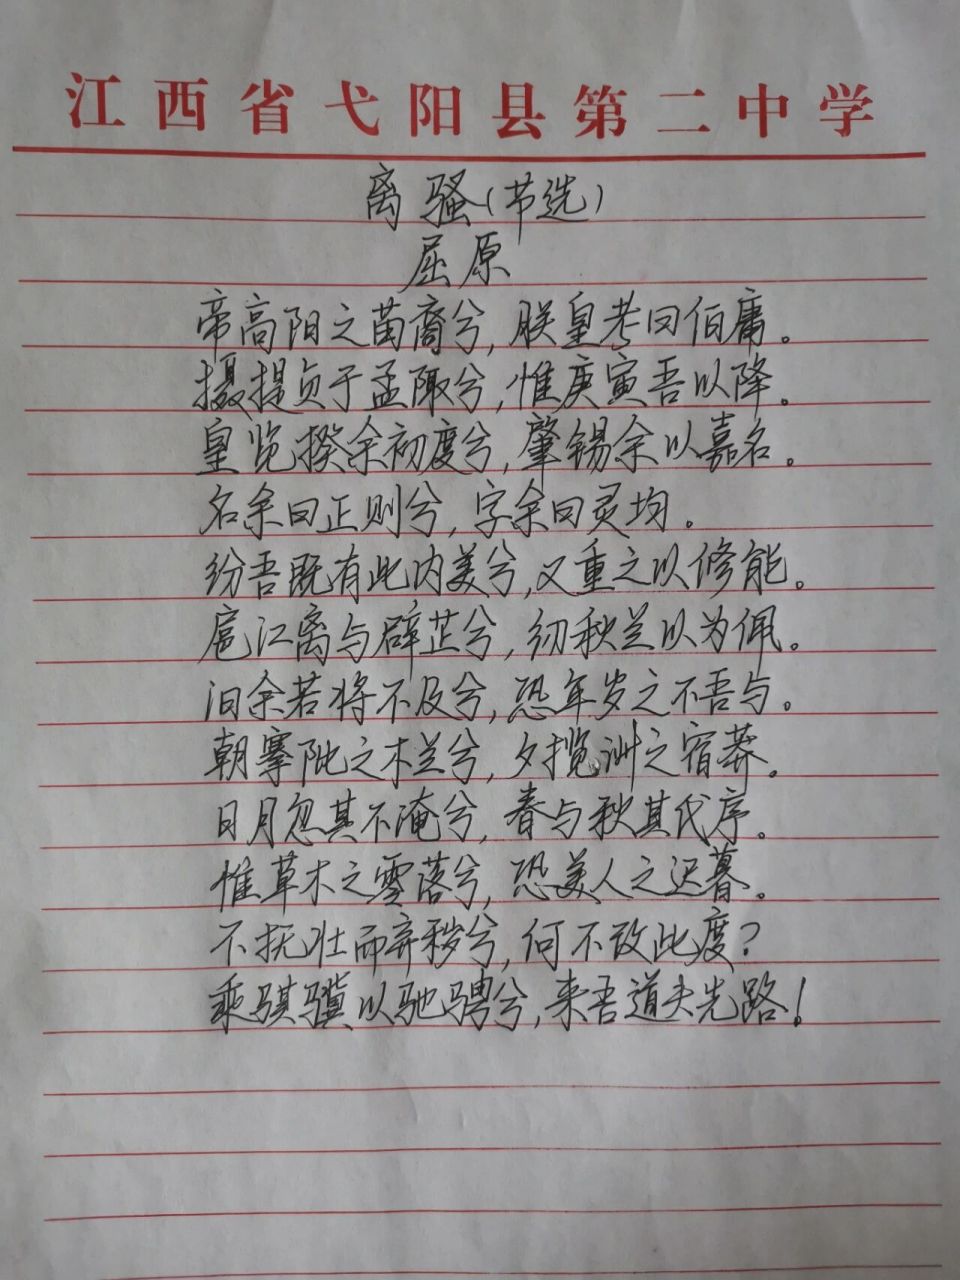 江西省弋阳县第二中学
离骚(节选)
屈原
帝高阳之苗裔兮,朕皇考曰伯庸。
摄提贞于孟陬兮,惟庚寅吾以降。
皇览揆余初度兮,肇锡余以嘉名。
名余曰正则兮,字余曰灵均。
纷吾既有此内美兮,又重之以修能。
扈江离与辟芷兮,纫秋兰以为佩。
汩余若将不及兮,恐年岁之不吾与。
朝搴阰之木兰兮,夕揽洲之宿莽。
日月忽其不淹兮,春与秋其代序。
惟草木之零落兮,恐美人之迟暮。
不抚壮而弃秽兮,何不改此度?
乘骐骥以驰骋兮,来吾道夫先路!